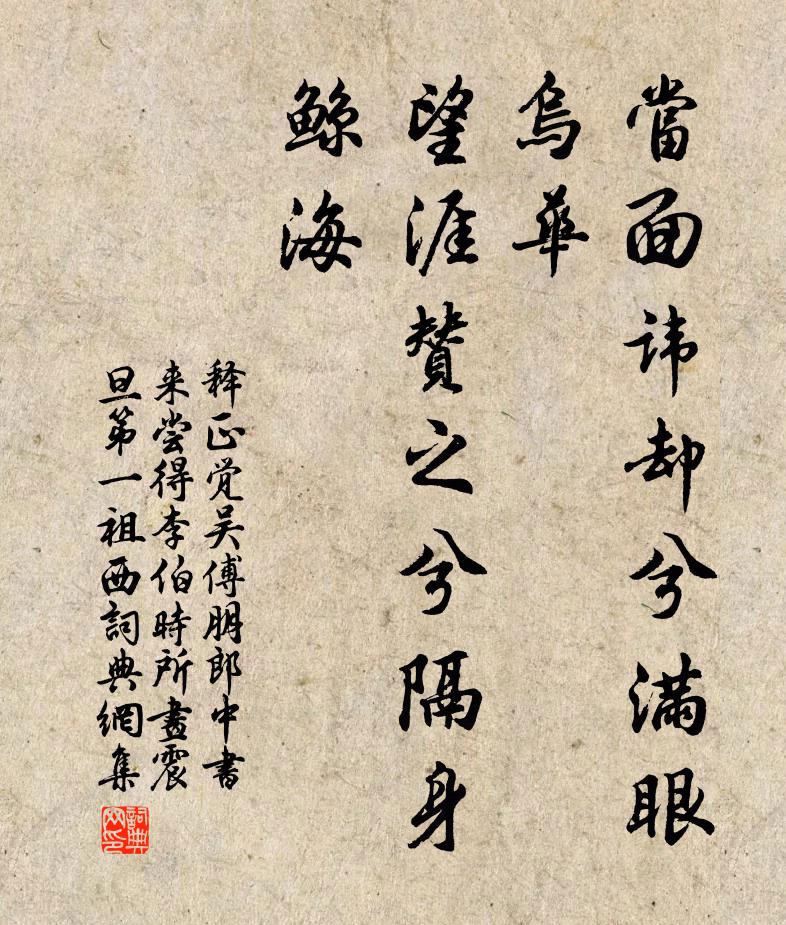 當面諱却兮滿眼
烏華
望涯贊之兮隔身
鯨海
释正觉吴傅朋郎中書
来尝得李伯時所畫震
旦第一祖西詞典網集
詞典
网印